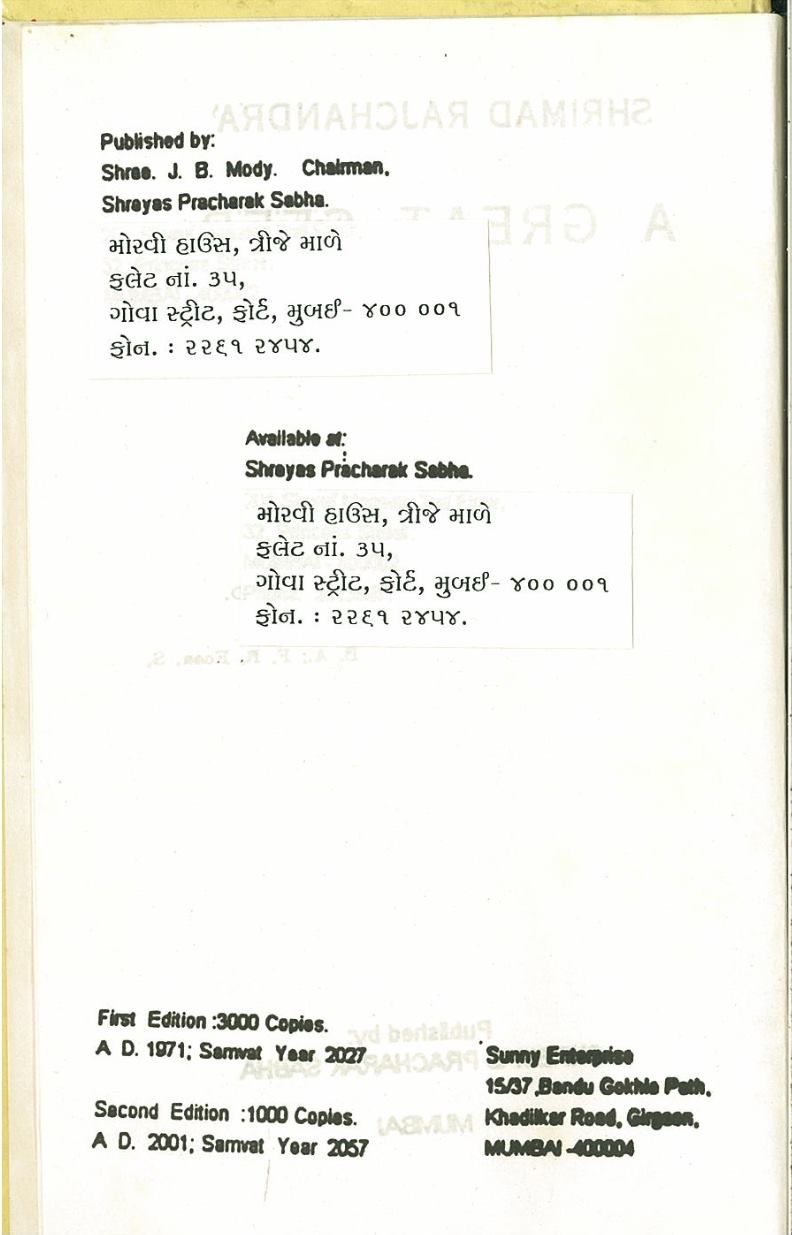 Published by:
Shree. J. B. Mody. Chairman,
Shreyas Pracharak Sabha.
મોરવી હાઉસ, ત્રીજે માળે
ફલેટ નાં. ૩૫,
ગોવા સ્ટ્રીટ, ફોર્ટ, મુબઈ- ૪૦૦ ૦૦૧
ફોન. : ૨૨૬૧ ૨૪૫૪.
Available at:
Shreyas Pracharak Sabha.
મોરવી હાઉસ, ત્રીજે માળે
ફલેટ નાં. ૩૫,
ગોવા સ્ટ્રીટ, ફોર્ટ, મુબઈ- ૪૦૦ ૦૦૧
ફોન. : ૨૨૬૧ ૨૪૫૪.
First Edition :3000 Copies.
A D. 1971; Samvat Year 2027
Second Edition :1000 Copies.
A D. 2001; Samvat Year 2057
Sunny Enterprise
15/37,Bandu Gokhle Path,
Khadilkar Road, Girgaon,
MUMBAI -400004